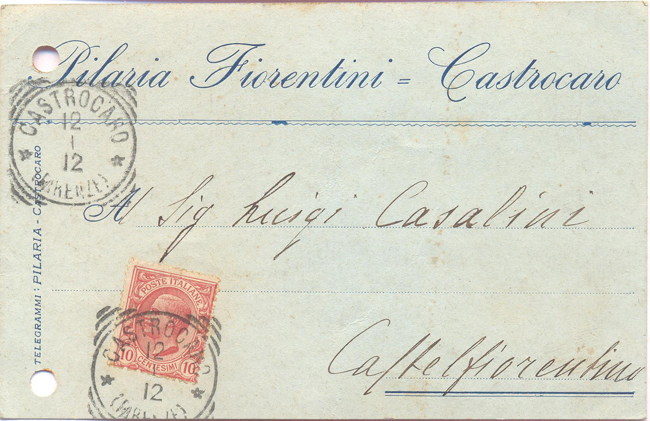 Pilaria Fiorentini = Castrocaro
CASTROCARO
12
1
12
(FIRENZE)
TELEGRAMMI: PILARIA - CASTROCARO
Al Sig Luigi Casalini
POSTE ITALIANE
10 CENTESIMI 10
CASTROCARO
12
1
12
(FIRENZE)
Castelfiorentino